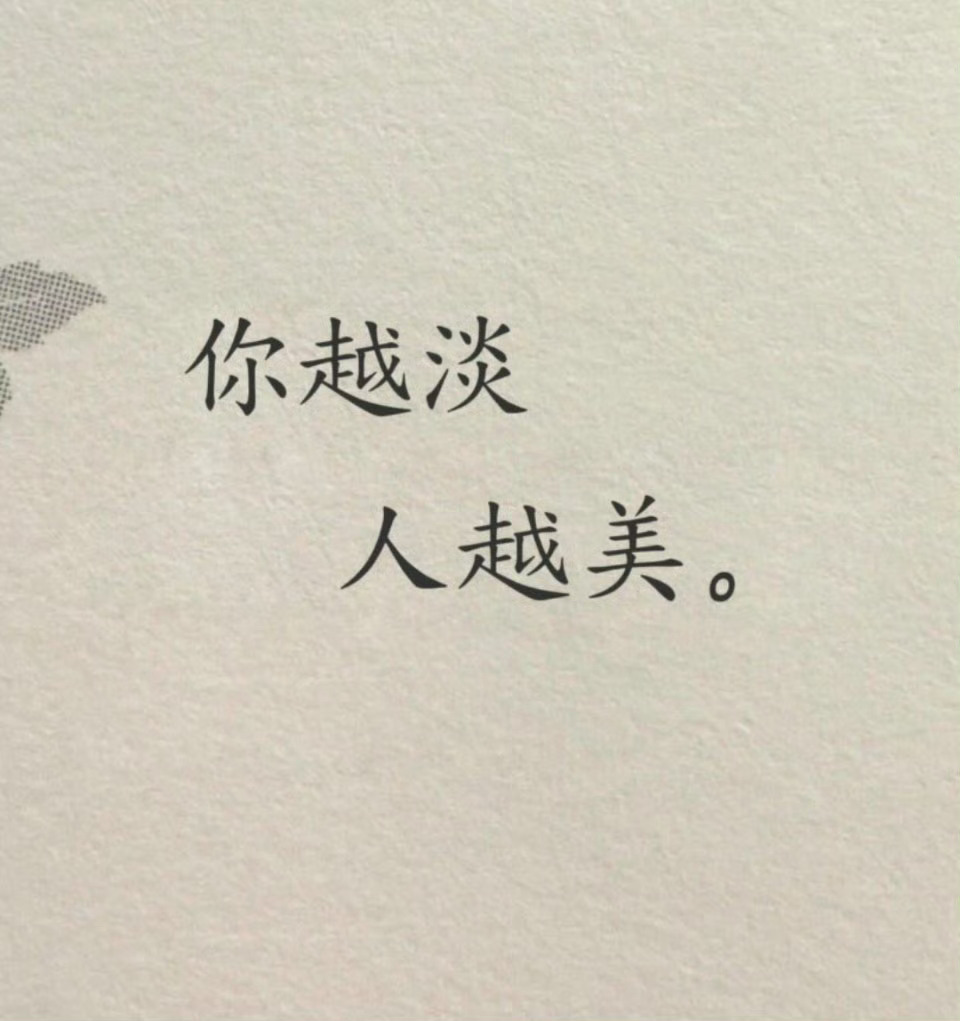 你越淡
人越美。